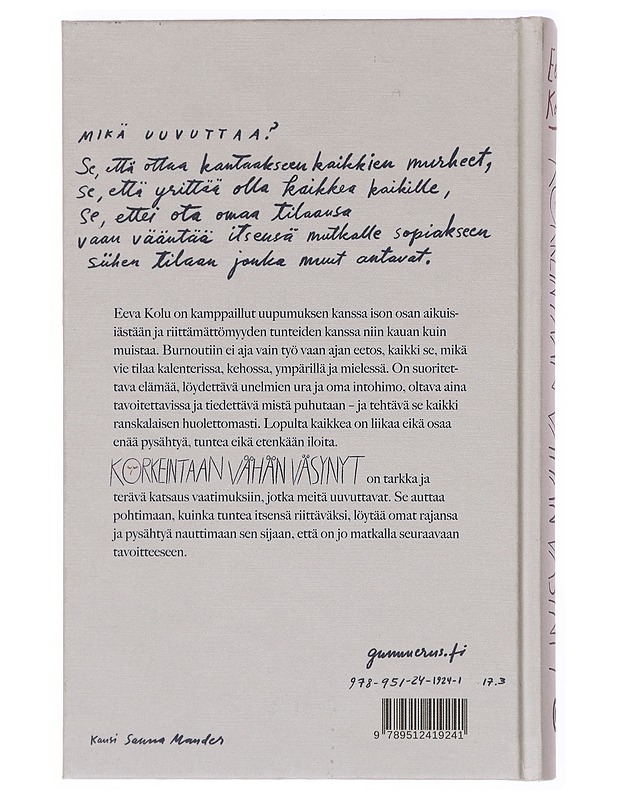 MIKÄ UUVUTTAA?
Se, että ottaa kantaakseen kaikkien murheet,
se, että yrittää olla kaikkea kaikille,
se, ettei ota omaa tilaansa
vaan vääntää itsensä mutkalle sopiakseen
siihen tilaan jonka muut antavat.
Eeva Kolu on kamppaillut uupumuksen kanssa ison osan aikuis-
iästään ja riittämättömyyden tunteiden kanssa niin kauan kuin
muistaa. Burnoutiin ei aja vain työ vaan ajan eetos, kaikki se, mikä
vie tilaa kalenterissa, kehossa, ympärillä ja mielessä. On suoritet-
tava elämää, löydettävä unelmien ura ja oma intohimo, oltava aina
tavoitettavissa ja tiedettävä mistä puhutaan – ja tehtävä se kaikki
ranskalaisen huolettomasti. Lopulta kaikkea on liikaa eikä osaa
enää pysähtyä, tuntea eikä etenkään iloita.
KORKEINTAAN VÄHÄN VÄSYNYT on tarkka ja
terävä katsaus vaatimuksiin, jotka meitä uuvuttavat. Se auttaa
pohtimaan, kuinka tuntea itsensä riittäväksi, löytää omat rajansa
ja pysähtyä nauttimaan sen sijaan, että on jo matkalla seuraavaan
tavoitteeseen.
gummerus.fi
978-951-24-1924-1 17.3
9 789512 419241
Kansi Sanna Mander